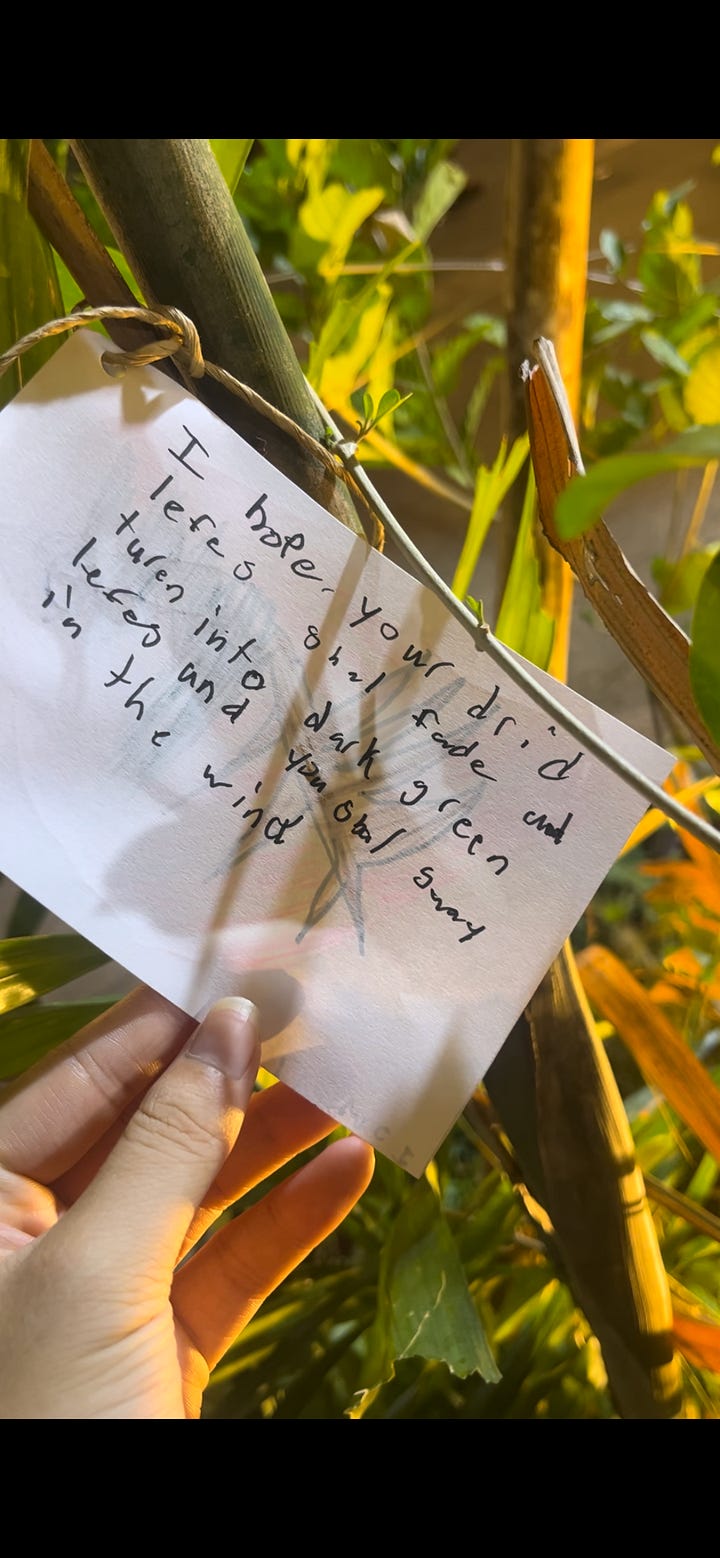 I hope your drid
lefes shal fade and
turen into dark green
lefes and you shal sway
in the wind